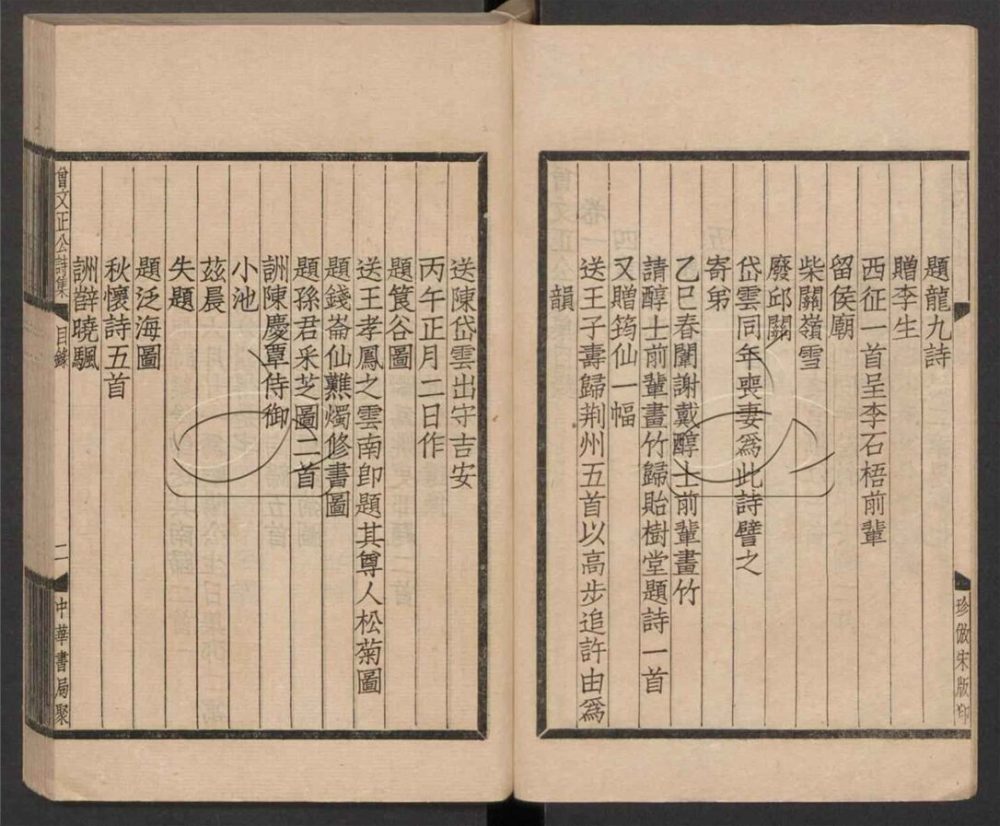 珍倣宋版印
題龍九詩
贈李生
西征一首呈李石梧前輩
留侯廟
柴關嶺雪
廢邱關
岱雲同年喪妻爲此詩譬之
寄弟
乙巳春闈謝戴醇士前輩畫竹
請醇士前輩畫竹歸貽樹堂題詩一首
又贈筠仙一幅
送王子壽歸荆州五首以高步追許由爲
韻
送陳岱雲出守吉安
丙午正月二日作
題篔谷圖
送王孝鳳之雲南卽題其尊人松菊圖
題錢崙仙爇燭修書圖
題孫君采芝圖二首
詶陳慶覃侍御
小池
茲晨
失題
題泛海圖
秋懷詩五首
詶嶭曉颿
曾文正公詩集 目錄 二 中華書局聚